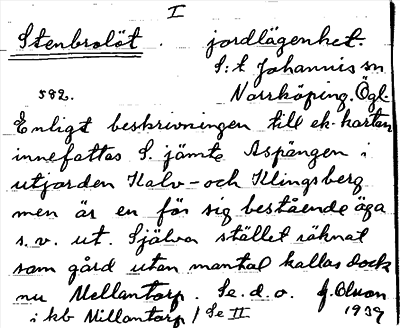 I
Stenbrolöt . jordlägenhet.
S:t Johannis sn
582. Norrköping. Ögl.
Enligt beskrivningen till ek. kartan
innefattas S. jämte Aspängen i
utjorden Kalv- och Klingsberg
men är en för sig bestående äga
s.v. ut. Själva stället räknat
som gård utan mantal kallas dock
nu Mellantorp. Se. d. o. J. Olson
i kb Millantorp / Se II 1939